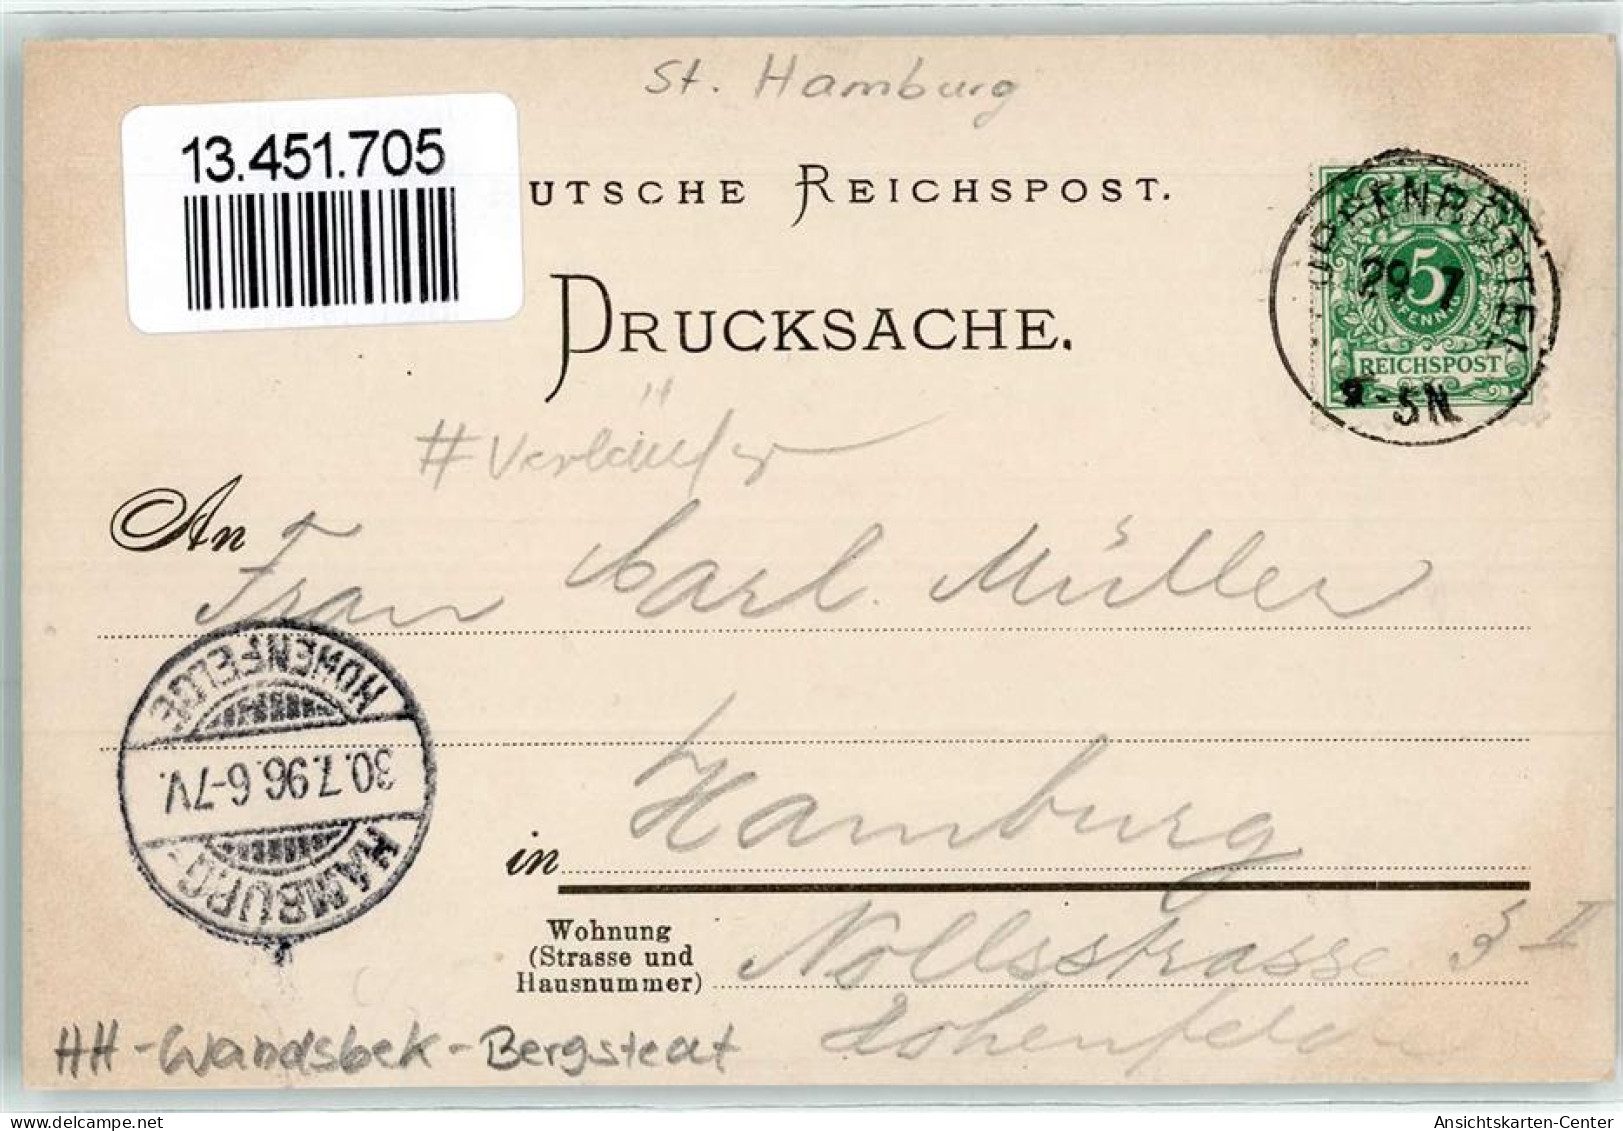 St. Hamburg
13.451.705
UTSCHE REICHSPOST.
DRUCKSACHE.
5
PFENNIG
REICHSPOST
29 7
-5N
#Vorläufer
An Frau Carl Müller
HAMBURG-
30.7.96.6-7V.
HOHENFELDE
in Hamburg
Wohnung
(Strasse und
Hausnummer)
Nollsstrasse 3 II
Hohenfelde
HH-Wandsbek-Bergstedt
Ansichtskarten-Center